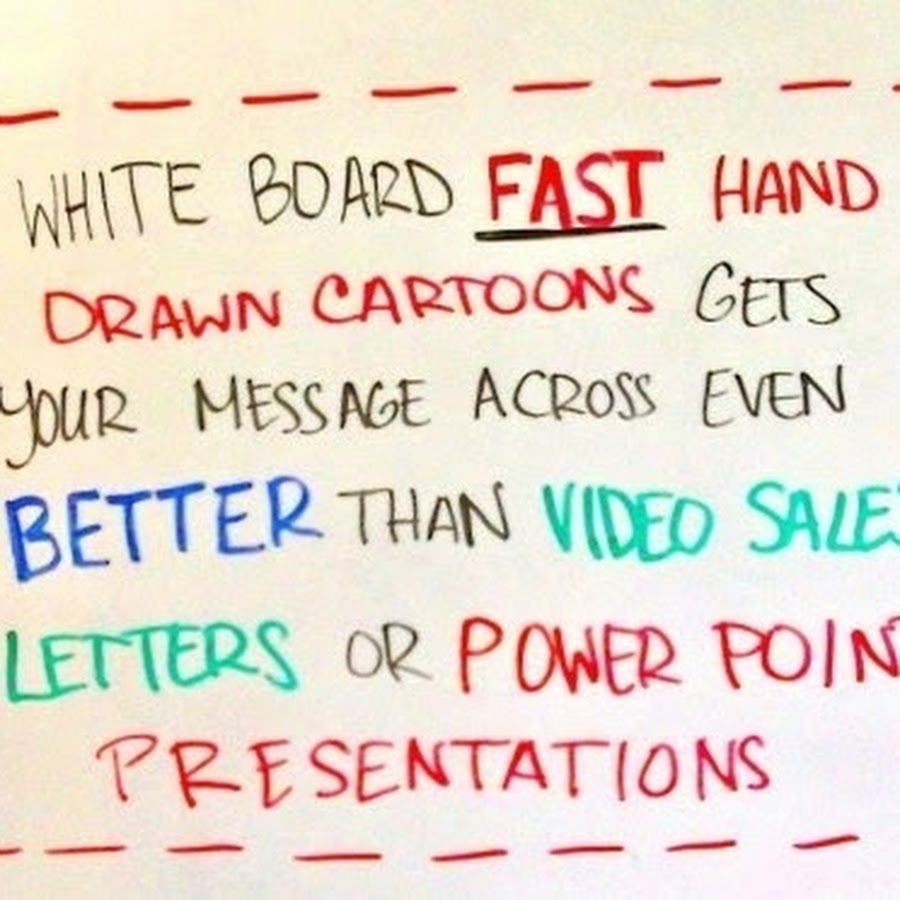 WHITE BOARD FAST HAND
DRAWN CARTOONS GETS
YOUR MESSAGE ACROSS EVEN
BETTER THAN VIDEO SALES
LETTERS OR POWER POINT
PRESENTATIONS